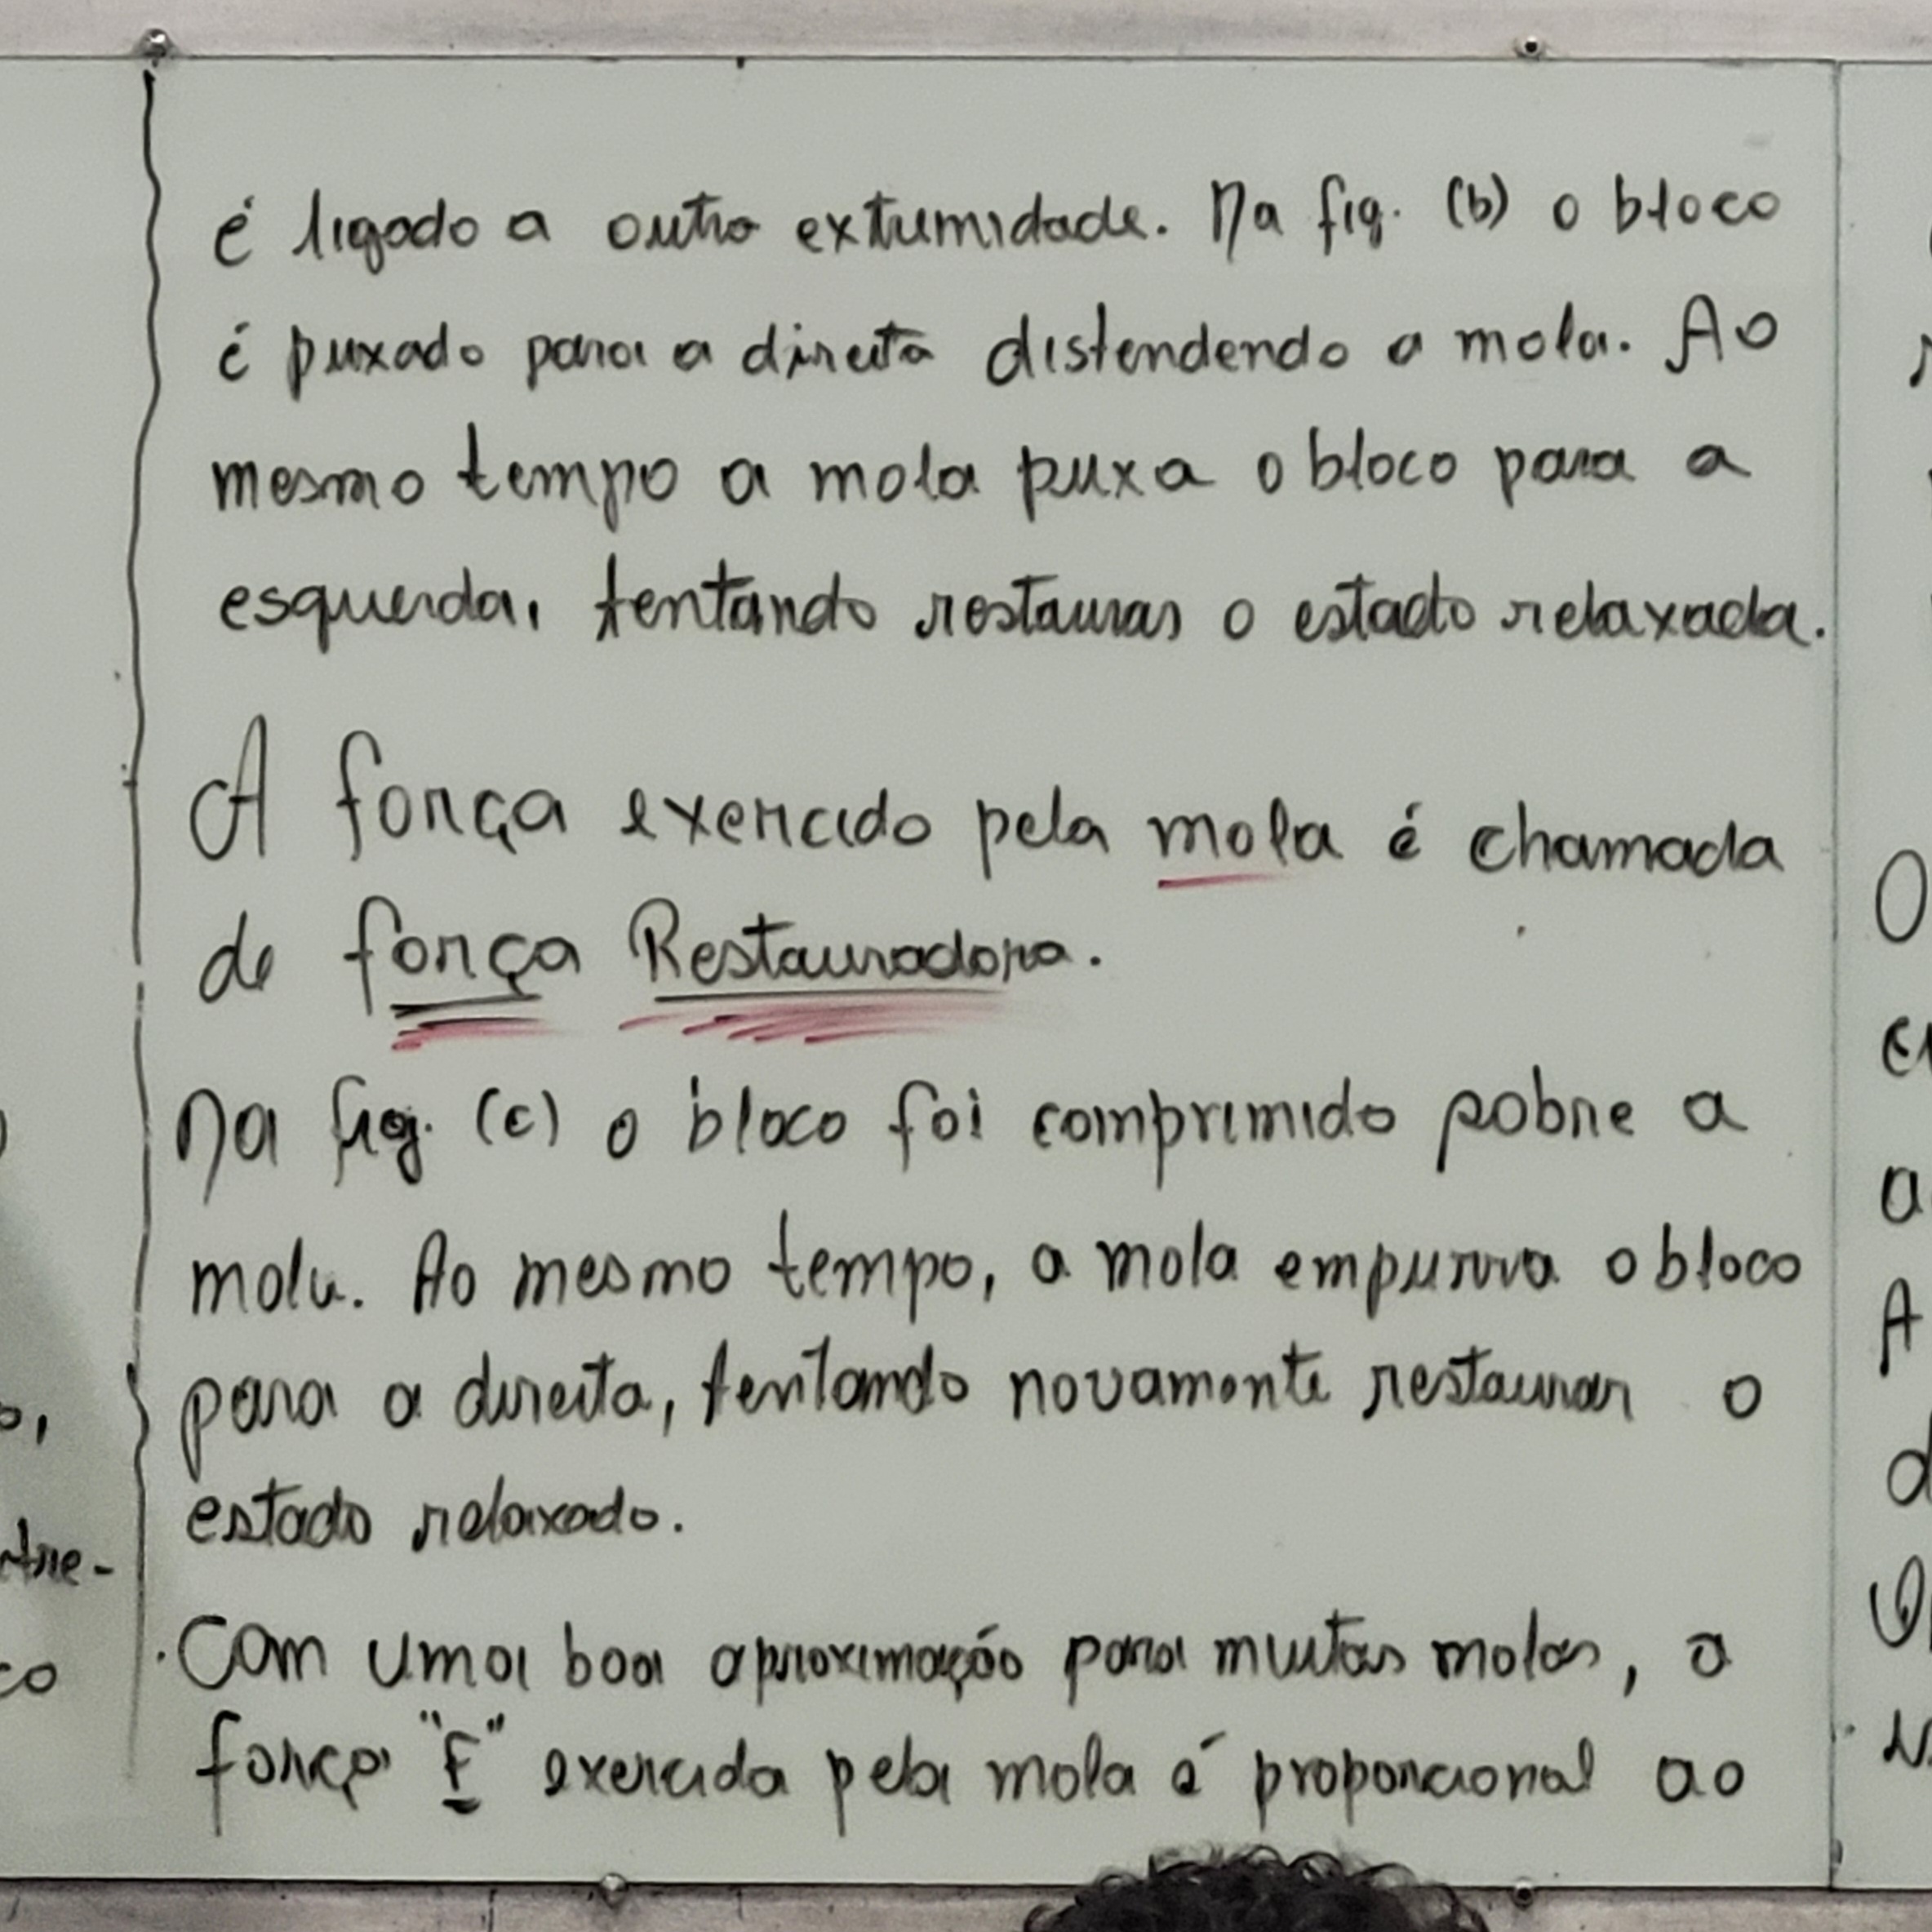 é ligado a outra extremidade. Na fig. (b) o bloco
é puxado para a direita distendendo a mola. Ao
mesmo tempo a mola puxa o bloco para a
esquerda, tentando restaurar o estado relaxada.
A força exercido pela mola é chamada
de força Restauradora.
Na fig. (c) o bloco foi comprimido sobre a
mola. Ao mesmo tempo, a mola empurra o bloco
para a direita, tentando novamente restaurar o
estado relaxado.
Com uma boa aproximação para muitas molas, a
força "F" exercida pela mola é proporcional ao